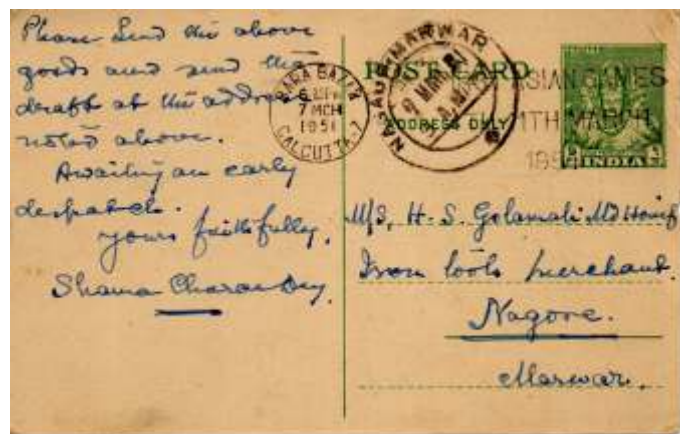 Please Send the above
goods and send the
draft at the address
noted above.
Awaiting an early
despatch.
yours faithfully,
Shama Charan Dey
BARA BAZAR
7 MCH
1951
CALCUTTA-7
NAGAUR MARWAR
9 MAR 51
POST CARD
ADDRESS ONLY
ASIAN GAMES
4TH MARCH
1951
INDIA
M/S, H. S. Golamali Md Hanif
Iron tools merchant.
Nagore.
Marwar.